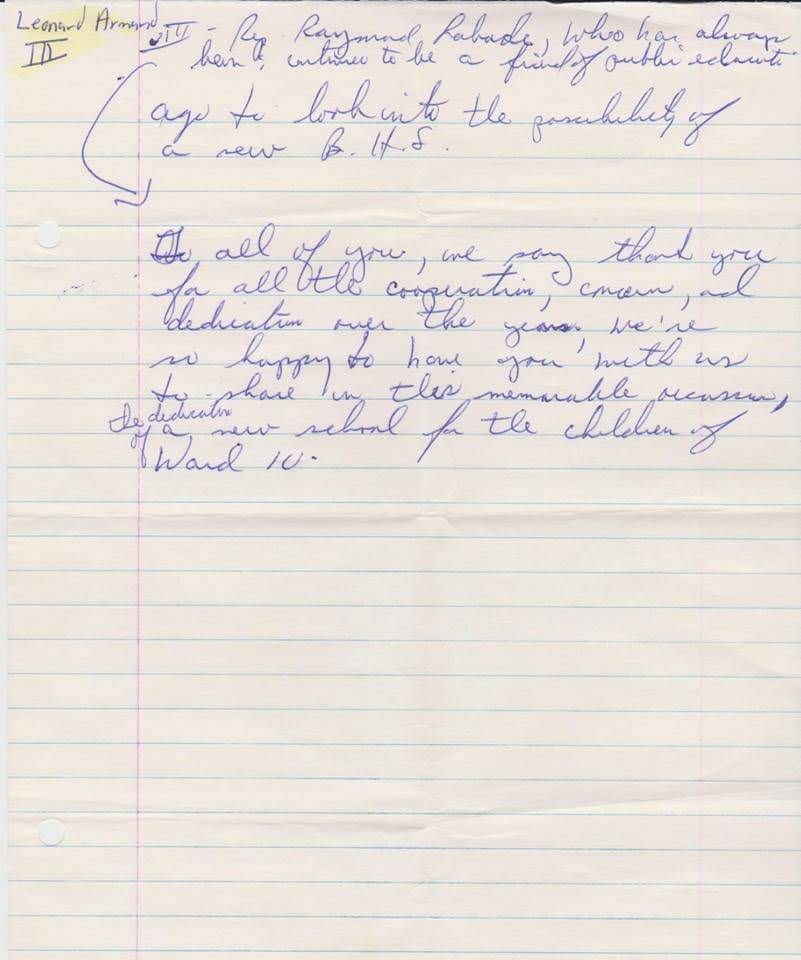 Leonard Armand
III
III - Rep. Raymond Labade, who has always
been &, continues to be a friend of public educati
ago to look into the possibility of
a new B.H.S.
To all of you, we say thank you
for all the cooperation, concern, and
dedication over the years, we're
so happy to have you with us
to share in this memorable occasion,
the dedication
of a new school for the children of
Ward 10.